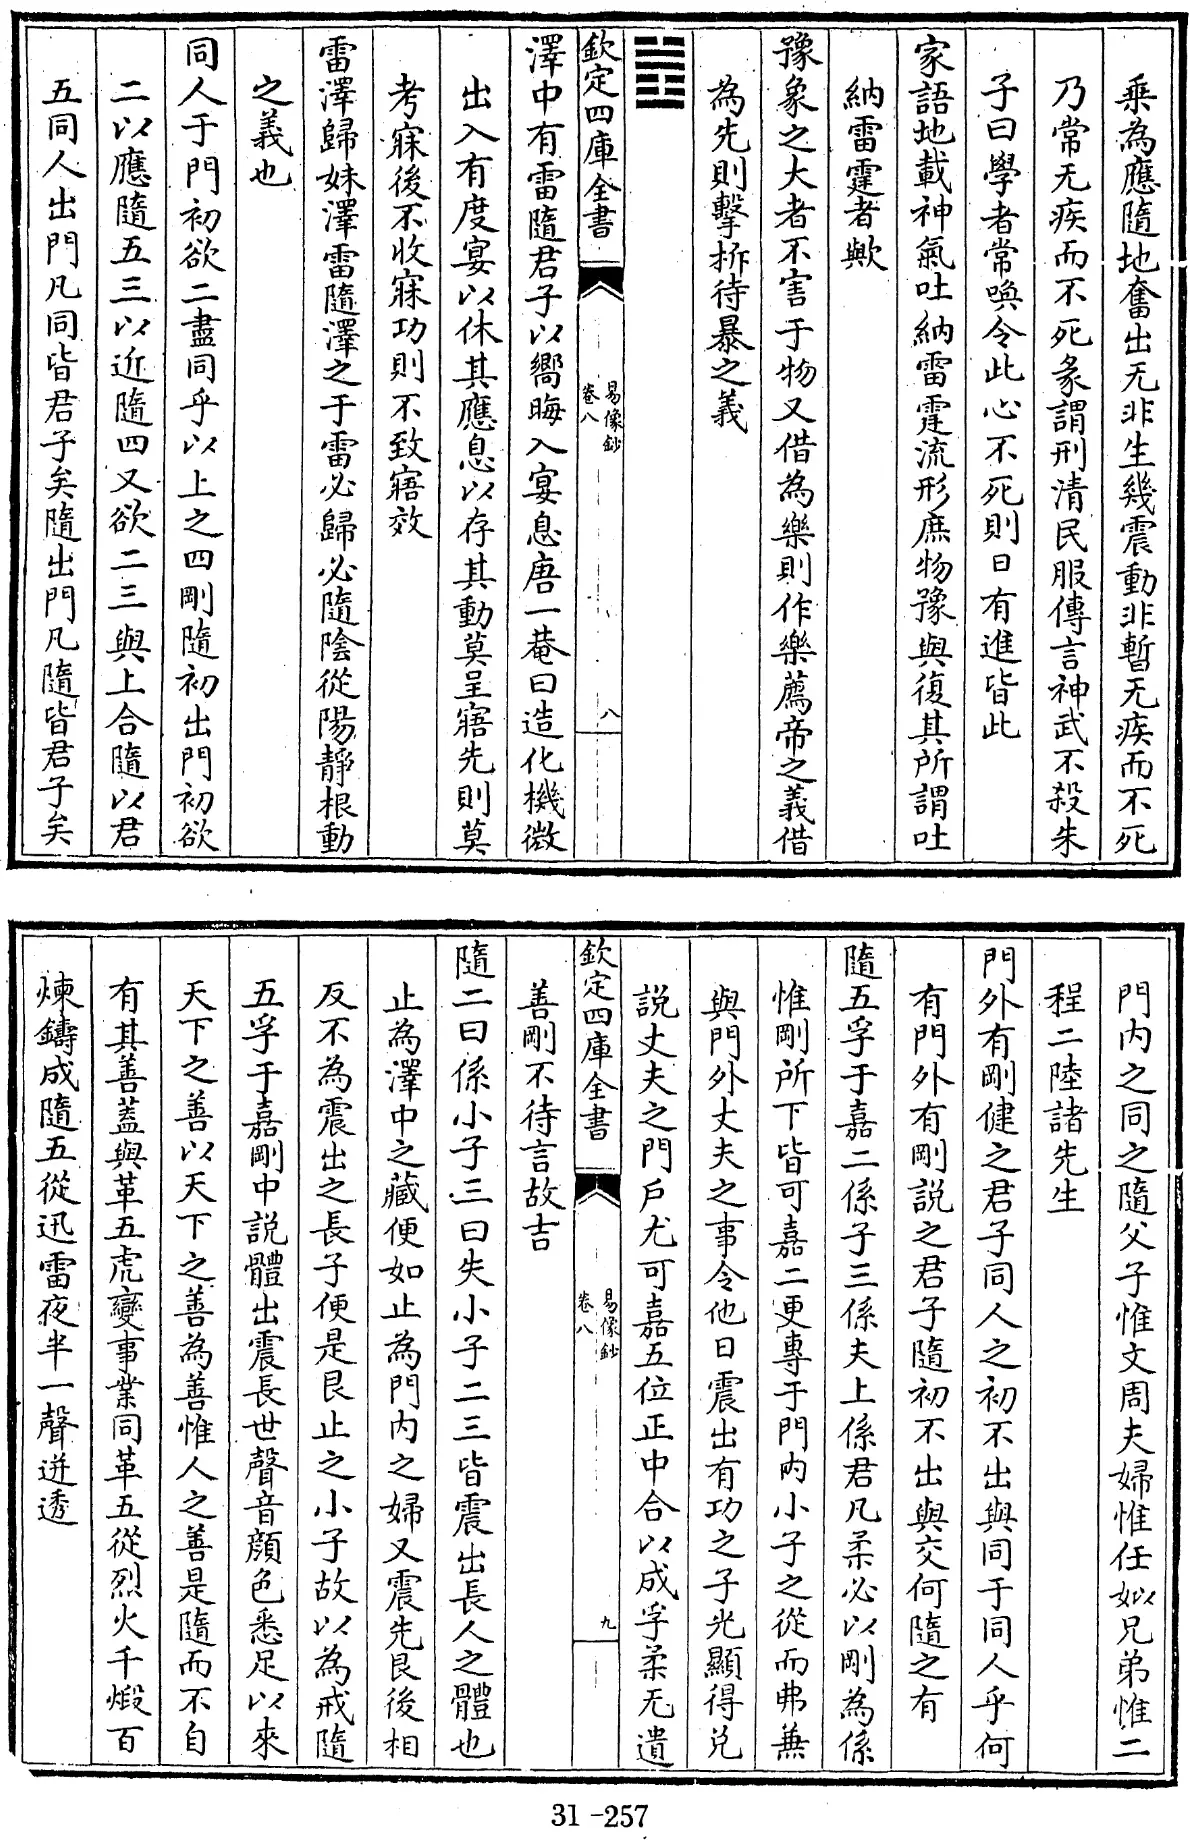 乗為應隨地奮出无非生幾震動非暫无疾而不死
乃常无疾而不死彖謂刑清民服傳言神武不殺朱
子曰學者常喚令此心不死則日有進皆此
家語地載神氣吐納雷霆流形庶物豫與復其所謂吐
納雷霆者歟
豫象之大者不害于物又借為樂則作樂薦帝之義借
為先則擊柝待暴之義
欽定四庫全書
易像鈔
卷八
八
澤中有雷隨君子以嚮晦入宴息唐一菴曰造化機微
出入有度宴以休其應息以存其動莫呈寤先則莫
考寐後不收寐功則不致寤效
雷澤歸妹澤雷隨澤之于雷必歸必隨陰從陽靜根動
之義也
同人于門初欲二盡同乎以上之四剛隨初出門初欲
二以應隨五三以近隨四又欲二三與上合隨以君
五同人出門凡同皆君子矣隨出門凡隨皆君子矣
門内之同之隨父子惟文周夫婦惟任姒兄弟惟二
程二陸諸先生
門外有剛健之君子同人之初不出與同于同人乎何
有門外有剛説之君子隨初不出與交何隨之有
隨五孚于嘉二係子三係夫上係君凡柔必以剛為係
惟剛所下皆可嘉二更專于門内小子之從而弗兼
與門外丈夫之事令他日震出有功之子光顯得兑
説丈夫之門戶尤可嘉五位正中合以成孚柔无遺
欽定四庫全書
易像鈔
卷八
九
善剛不待言故吉
隨二曰係小子三曰失小子二三皆震出長人之體也
止為澤中之藏便如止為門内之婦又震先艮後相
反不為震出之長子便是艮止之小子故以為戒隨
五孚于嘉剛中説體出震長世聲音顔色悉足以來
天下之善以天下之善為善惟人之善是隨而不自
有其善蓋與革五虎變事業同革五從烈火千煅百
煉鑄成隨五從迅雷夜半一聲迸透
31-257